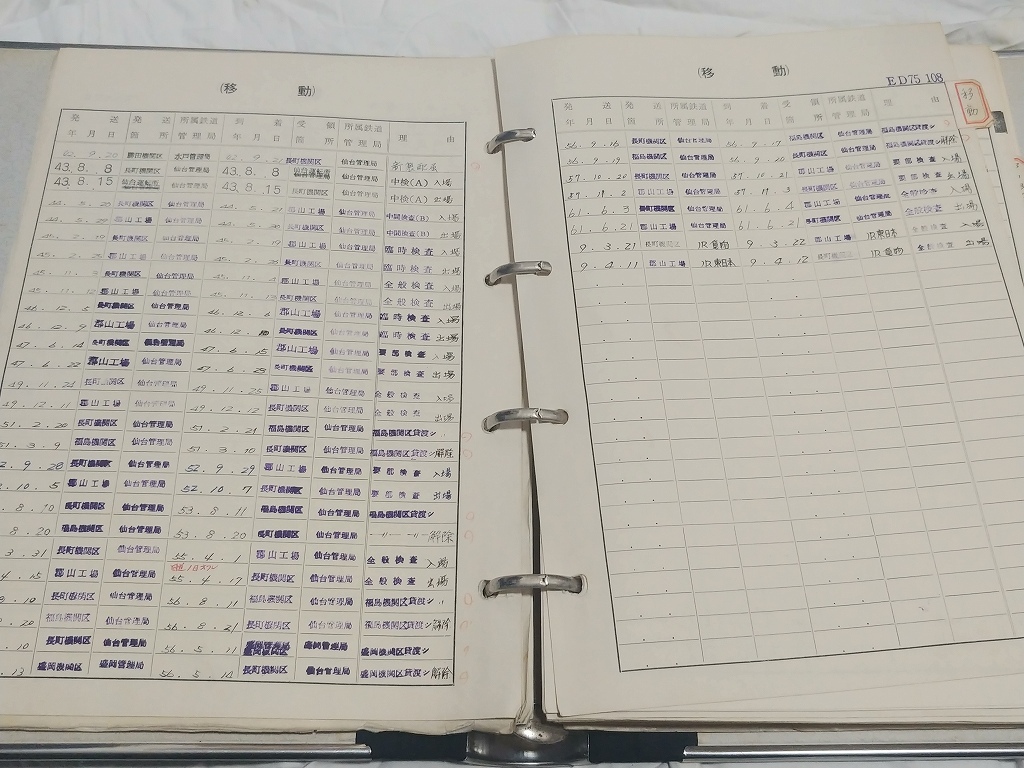 (移 動)
発 送 発 送 所属鉄道 到 着 受 領 所属鉄道 理 由
年 月 日 箇 所 管理局 年 月 日 箇 所 管理局
勝田機関区 水戸管理局 長町機関区 仙台管理局
43.8.8 長町機関区 仙台管理局 43.8.8 仙台管理局 中検(A) 入場
43.8.15 仙台管理局 43.8.15 長町機関区 仙台管理局 中検(A) 出場
長町機関区 仙台管理局 郡山工場 仙台管理局 中間検査(B) 入場
郡山工場 仙台管理局 長町機関区 仙台管理局 中間検査(B) 出場
45.2.19 長町機関区 仙台管理局 45.2.19 郡山工場 仙台管理局 臨時検査 入場
郡山工場 仙台管理局 長町機関区 仙台管理局 臨時検査 出場
45.11.3 長町機関区 仙台管理局 45.11.4 郡山工場 仙台管理局 全般検査 入場
45.11.12 郡山工場 仙台管理局 45.11.13 長町機関区 仙台管理局 全般検査 出場
46.12.5 長町機関区 仙台管理局 46.12.6 郡山工場 仙台管理局 臨時検査 入場
46.12.9 郡山工場 仙台管理局 46.12.10 長町機関区 仙台管理局 臨時検査 出場
47.6.14 長町機関区 仙台管理局 47.6.15 郡山工場 仙台管理局 要部検査 入場
47.6.22 郡山工場 仙台管理局 47.6.23 長町機関区 仙台管理局 要部検査 出場
49.11.24 長町機関区 仙台管理局 49.11.25 郡山工場 仙台管理局 全般検査 入場
49.12.11 郡山工場 仙台管理局 49.12.12 長町機関区 仙台管理局 全般検査 出場
51.2.20 長町機関区 仙台管理局 51.2.21 福島機関区 仙台管理局 福島機関区貸渡シ
51.3.9 福島機関区 仙台管理局 51.3.10 長町機関区 仙台管理局 福島機関区貸渡シ解除
2.9.28 長町機関区 仙台管理局 52.9.29 郡山工場 仙台管理局 要部検査 入場
.10.5 郡山工場 仙台管理局 52.10.7 長町機関区 仙台管理局 要部検査 出場
.8.10 長町機関区 仙台管理局 53.8.11 福島機関区 仙台管理局 福島機関区貸渡シ
.8.20 福島機関区 仙台管理局 53.8.20 長町機関区 仙台管理局 解除
3.31 長町機関区 仙台管理局 55.4.1 郡山工場 仙台管理局 全般検査 入場
4.15 郡山工場 仙台管理局 55.4.17 長町機関区 仙台管理局 全般検査 出場
長町機関区 仙台管理局 56.8.11 福島機関区 仙台管理局 福島機関区貸渡シ
福島機関区 仙台管理局 56.8.21 長町機関区 仙台管理局 福島機関区貸渡シ解除
.10 長町機関区 仙台管理局 56.5.11 盛岡機関区 盛岡管理局 盛岡機関区貸渡シ
.13 盛岡機関区 盛岡管理局 56.5.14 長町機関区 仙台管理局 盛岡機関区貸渡シ解除
(移 動)
ED75 108
移動
発 送 発 送 所属鉄道 到 着 受 領 所属鉄道 理 由
年 月 日 箇 所 管理局 年 月 日 箇 所 管理局
56.9.16 長町機関区 仙台管理局 56.9.17 福島機関区 仙台管理局 福島機関区貸渡シ
56.9.19 福島機関区 仙台管理局 56.9.20 長町機関区 仙台管理局 福島機関区貸渡シ解除
57.10.20 長町機関区 仙台管理局 57.10.21 郡山工場 仙台管理局 要部検査 入場
郡山工場 仙台管理局 長町機関区 仙台管理局 要部検査 出場
61.6.3 長町機関区 仙台管理局 61.6.4 郡山工場 仙台管理局 全般検査 入場
61.6.21 郡山工場 仙台管理局 61.6.21 長町機関区 仙台管理局 全般検査 出場
9.3.21 長町機関区 JR貨物 9.3.22 郡山工場 JR東日本 全般検査 入場
9.4.11 郡山工場 JR東日本 9.4.12 長町機関区 JR貨物 全般検査 出場